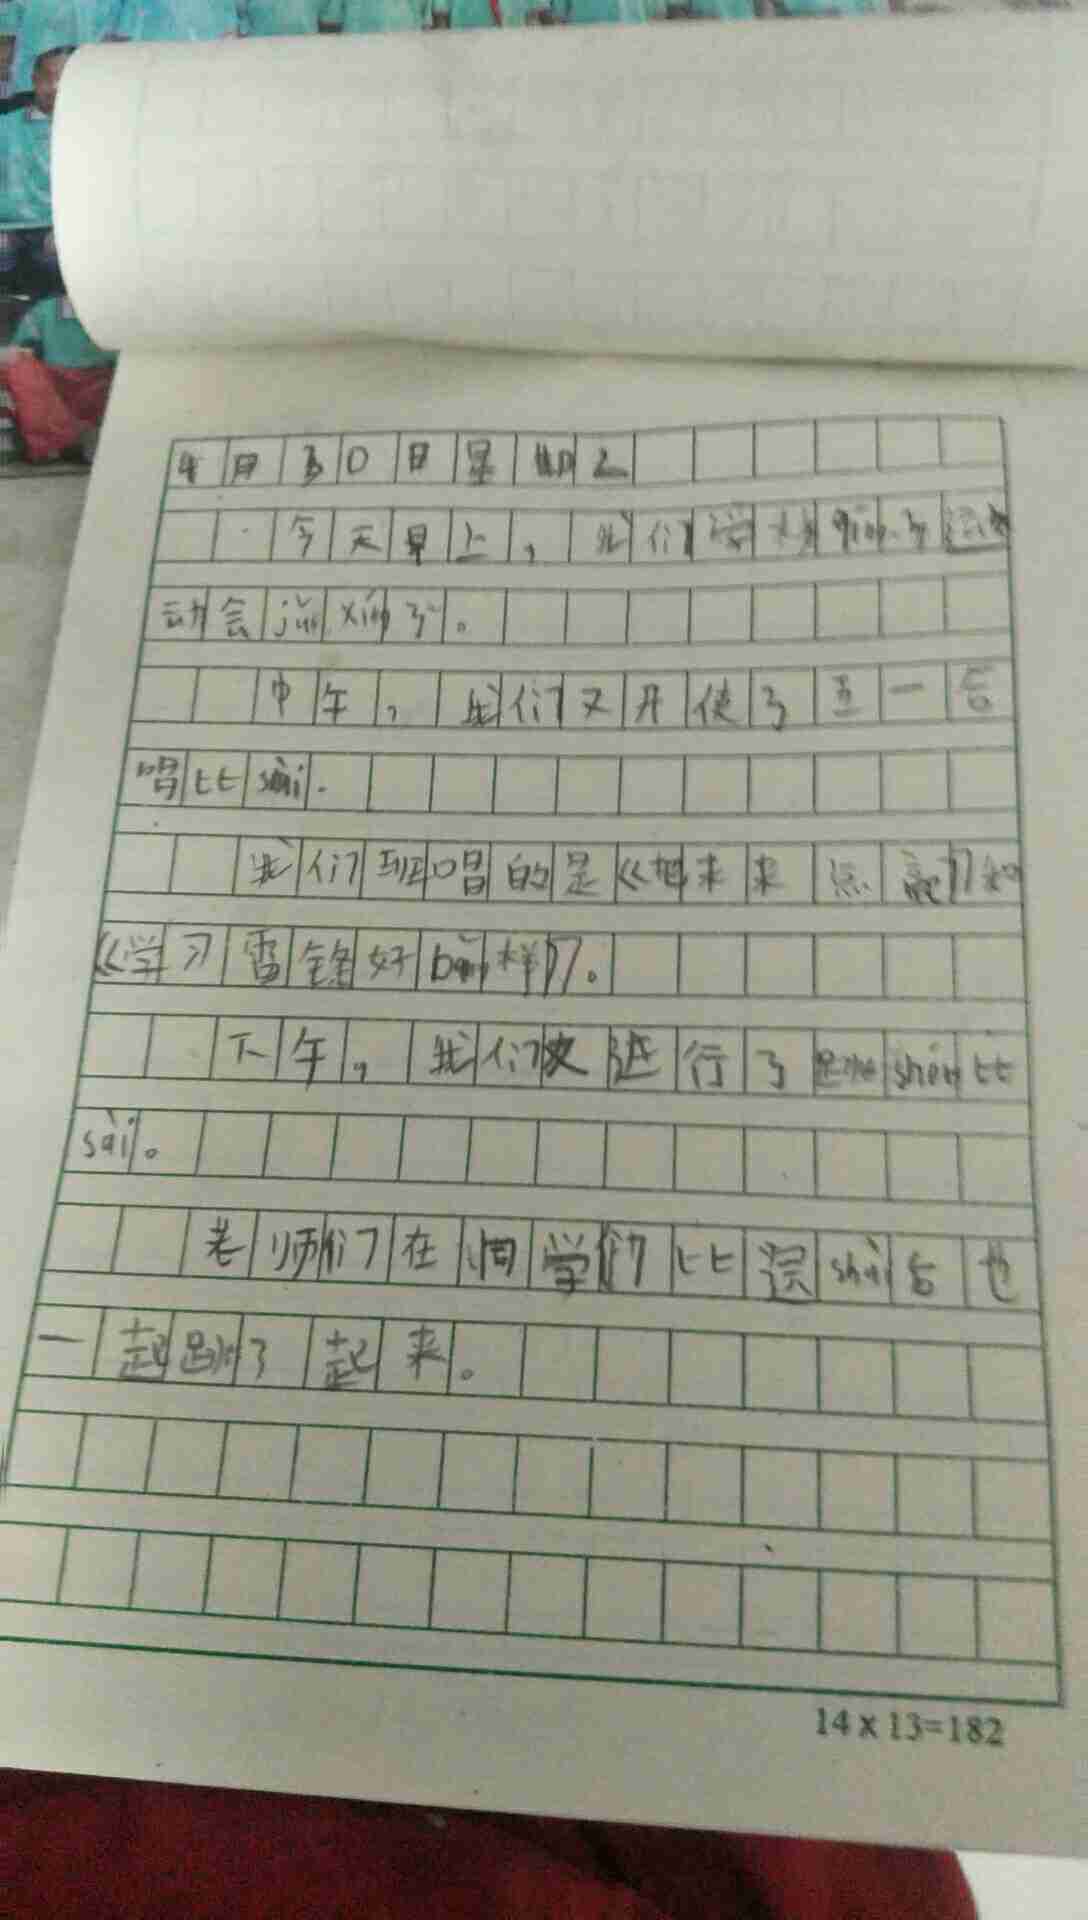 4月30日星期二
今天早上，我们学校jǔ了运
动会jǔ xín了。
中午，我们又开使了五一合
唱比sài.
我们班唱的是《把未来点亮》和
《学习雷锋好bǎn样》。
下午，我们又进行了跳shén比
sài。
老师们在同学们比shài后也
一起跳了起来。
14 x 13=182